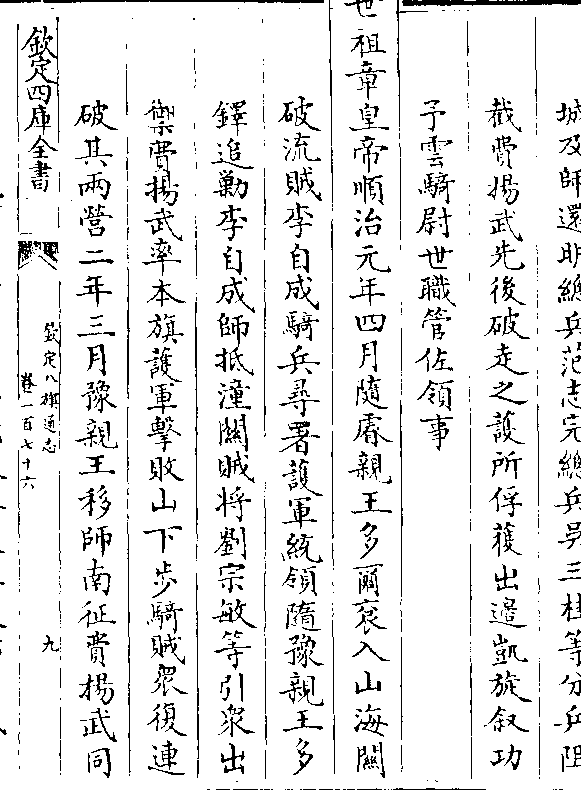 城及師還明總兵范志完總兵吳三桂等分兵阻
截費揚武先後破走之護所俘獲出邊凱旋叙功
予雲騎尉世職管佐領事
世祖章皇帝順治元年四月隨睿親王多爾衮入山海關
破流賊李自成騎兵尋署護軍統領隨豫親王多
鐸追勦李自成師抵潼關賊將劉宗敏等引衆出
禦費揚武率本旗護軍擊敗山下步騎賊衆復連
破其兩營二年三月豫親王移師南征費揚武同
欽定四庫全書
欽定八旗通志
卷一百七十六
九